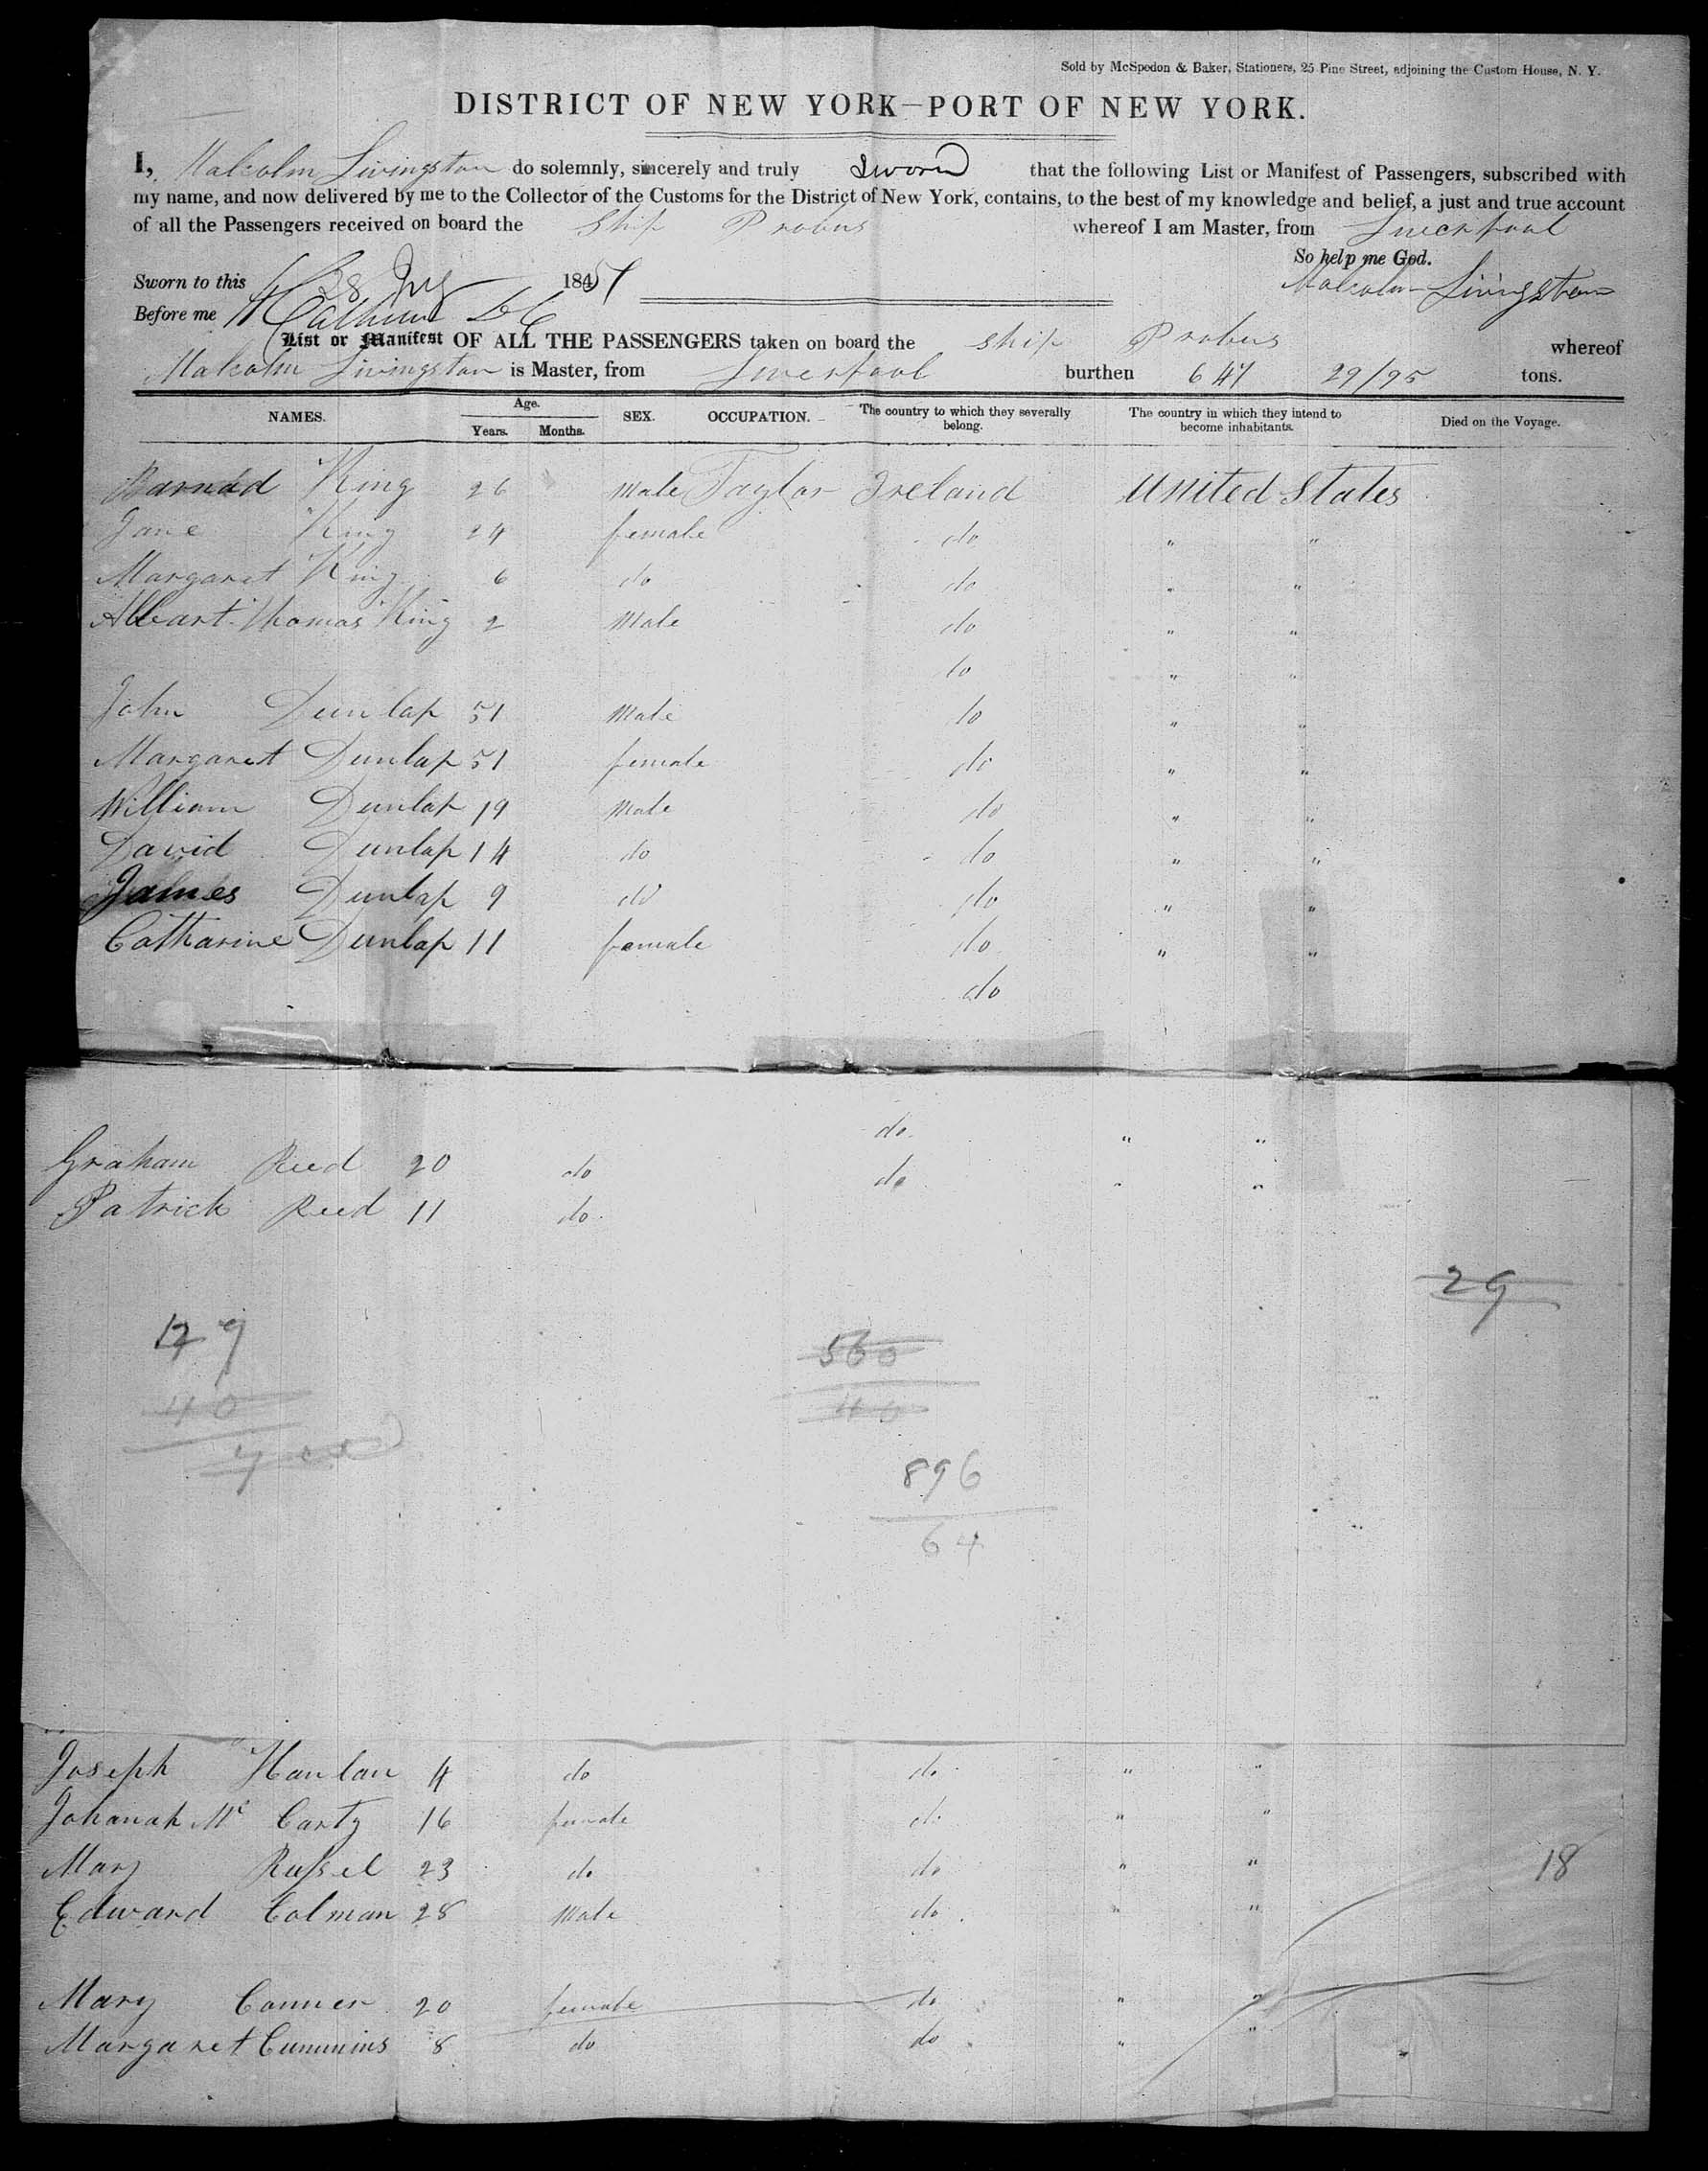 Sold by McSpedon & Baker, Stationers, 25 Pine Street, adjoining the Custom House, N. Y.
DISTRICT OF NEW YORK—PORT OF NEW YORK.
I, Malcolm Livingston do solemnly, sincerely and truly Sworn that the following List or Manifest of Passengers, subscribed with
my name, and now delivered by me to the Collector of the Customs for the District of New York, contains, to the best of my knowledge and belief, a just and true account
of all the Passengers received on board the Ship Probus whereof I am Master, from Liverpool
So help me God.
Sworn to this 28 184
Malcolm Livingston
Before me
List or Manifest OF ALL THE PASSENGERS taken on board the Ship Probus whereof
Malcolm Livingston is Master, from Liverpool burthen 647 29/95 tons.
NAMES. Age. Years. Months. SEX. OCCUPATION. The country to which they severally belong. The country in which they intend to become inhabitants. Died on the Voyage.
Barnard King 26 Male Taylor Ireland United States
Jane King 24 female do " "
Margaret King 6 do do " "
Albart Thomas King 2 Male do " "
do " "
John Dunlap 51 Male do " "
Margaret Dunlap 51 female do " "
William Dunlap 19 Male do " "
David Dunlap 14 do do " "
James Dunlap 9 do do " "
Catharine Dunlap 11 female do " "
do
do " "
Graham Reed 20 do do " "
Patrick Reed 11 do
29
560
40
40
896
64
Joseph Hanlan 4 do do " "
Johanah Mc Carty 16 female do " "
Mary Russel 23 do do " "
18
Edward Colman 28 Male do " "
Mary Conner 20 female do " "
Margaret Cummins 8 do do " "